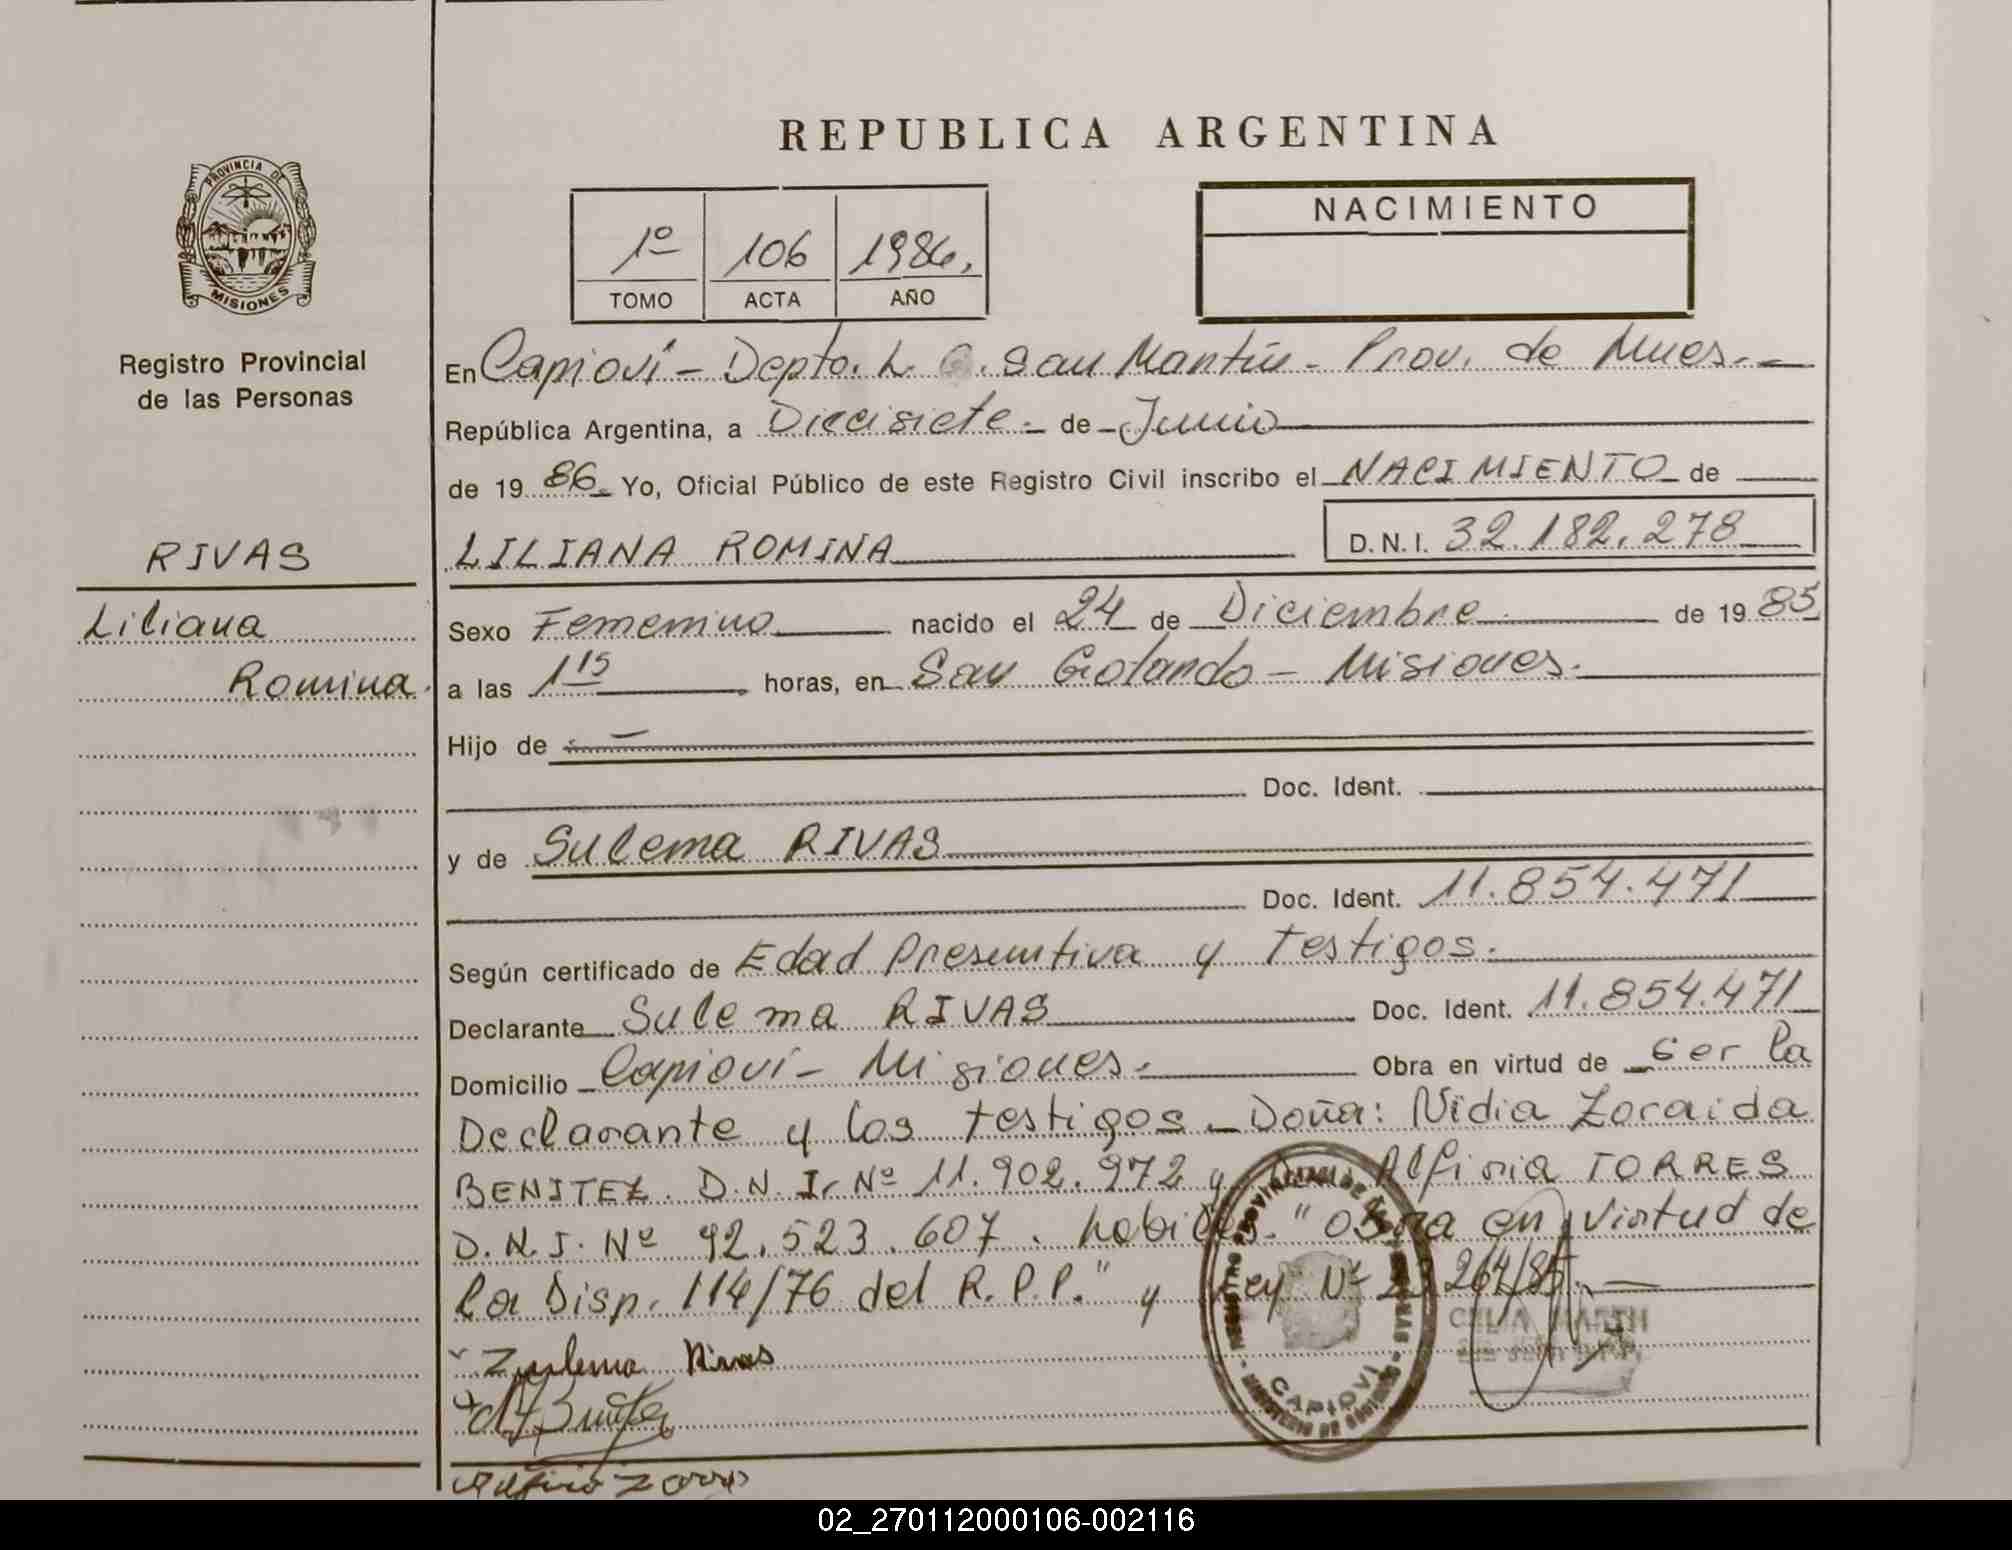 REPUBLICA ARGENTINA
PROVINCIA DE
MISIONES
Registro Provincial
de las Personas
1º 106 1986.
TOMO ACTA AÑO
NACIMIENTO
RIVAS
Liliana
Romina.
En Capioví - Depto. L. G. San Martín - Prov. de Mnes. -
República Argentina, a Diecisiete - de - Junio
de 19 86. Yo, Oficial Público de este Registro Civil inscribo el NACIMIENTO de
LILIANA ROMINA D.N.I. 32.182.278
Sexo Femenino nacido el 24 de Diciembre de 19 85
a las 1 15 horas, en San Gotardo - Misiones.
Hijo de
Doc. Ident.
y de Sulema RIVAS
Doc. Ident. 11.854.471
Según certificado de Edad Presuntiva y Testigos.
Declarante Sulema RIVAS Doc. Ident. 11.854.471
Domicilio Capioví - Misiones. Obra en virtud de Ser la
Declarante y los testigos - Doña: Nidia Zoraida
BENITEZ. D.N.I. Nº 11.902.972 y TORRES
D.N.I. Nº 92.523.607. habiles. "Obra en virtud de
la Disp. 114/76 del R.P.P." y Ley Nº 23.264/85. -
Zulema Rivas
CAPIOVI
02_270112000106-002116